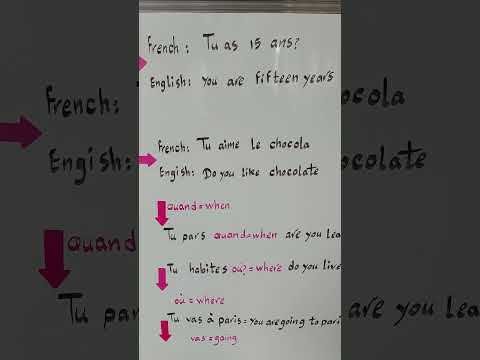 French: Tu as 15 ans?
English: You are fifteen years
French: Tu aime Le chocola
Engish: Do you like chocolate
quand=when
Tu pars quand=when are you Lea
Tu habites où?=where do you live
où=where
Tu vas à paris=You are going to pari
vas=going